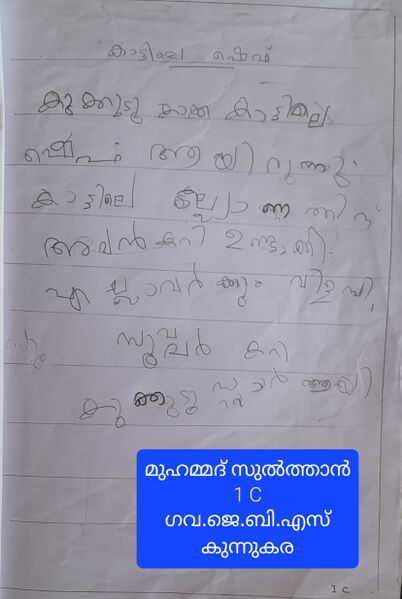 കാട്ടിലെ ഷെഫ്
കുക്കുടു കാക്ക കാട്ടിലെ
ഷെഫ് ആയിരുന്നു.
കാട്ടിലെ കല്ല്യാണത്തിന്
അവൻ കറി ഉണ്ടാക്കി.
എല്ലാവർക്കും വിളമ്പി.
സൂപ്പർ കറി
കുക്കുടു സ്റ്റാർ ആയി
മുഹമ്മദ് സുൽത്താൻ
1 C
ഗവ.ജെ.ബി.എസ്
കുന്നുകര
1 C